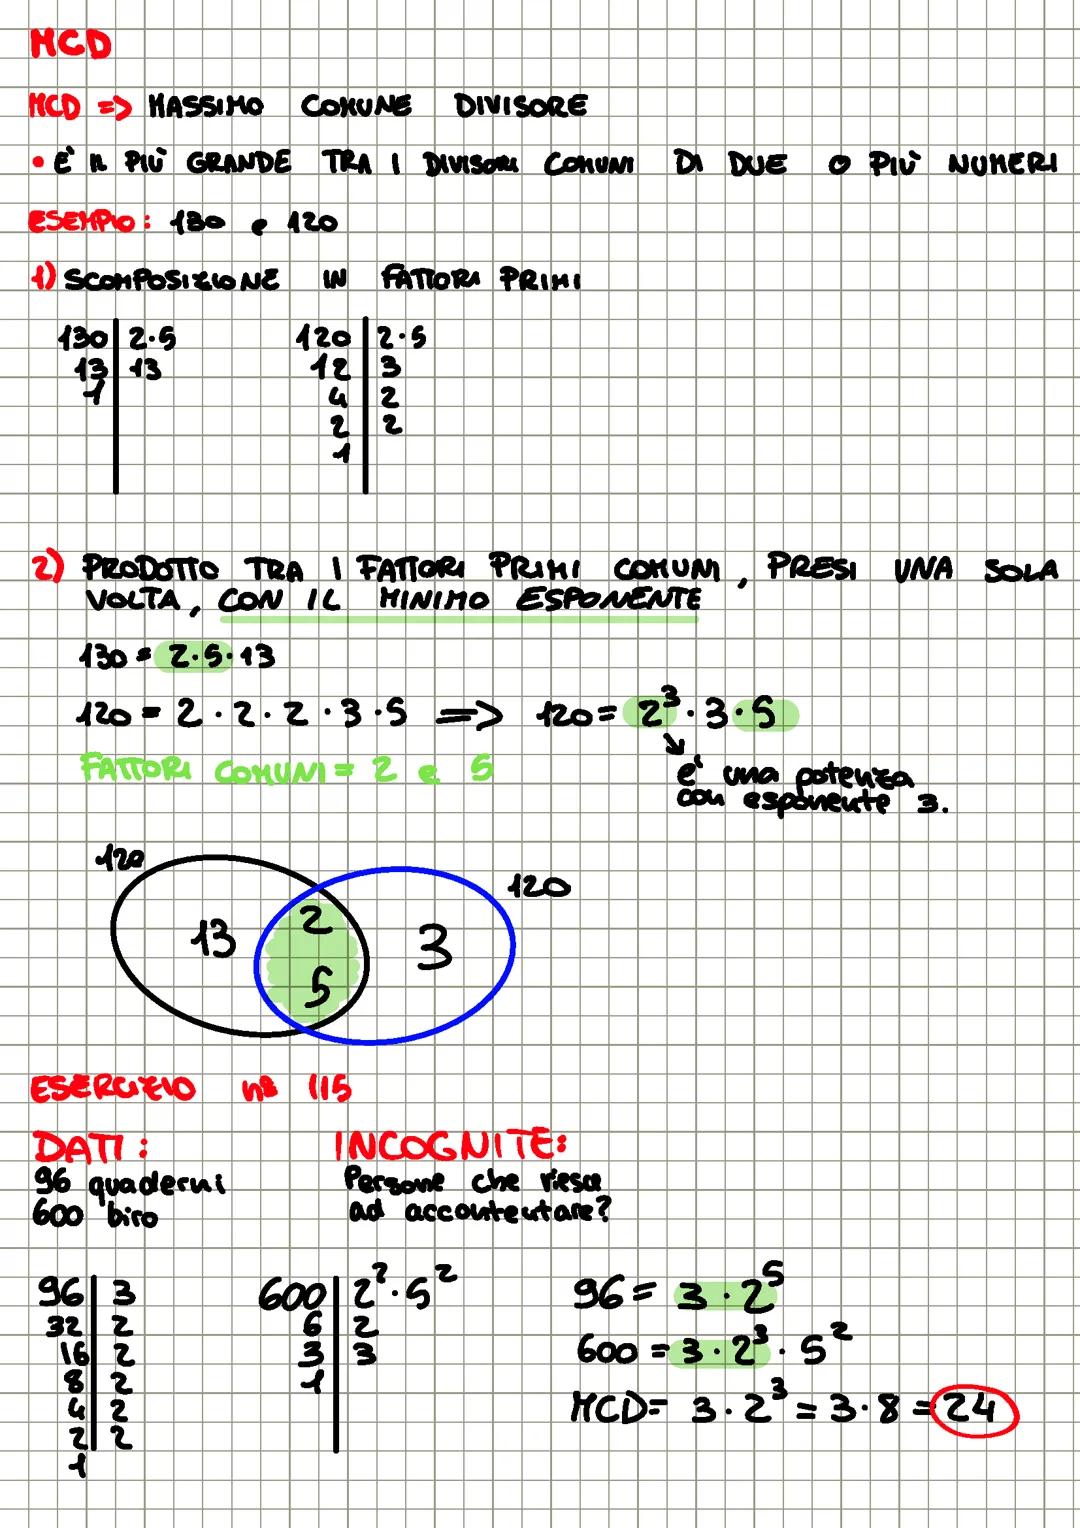 MCD
MCD => MASSIMO COMUNE DIVISORE
• È IL PIÙ GRANDE TRA I DIVISORI COMUNI DI DUE O PIÙ NUMERI
ESEMPIO: 130 e 120
1) SCOMPOSIZIONE IN FATTORI PRIMI
130 | 2·5 120 | 2·5
13 | 13 12 | 3
1 4 | 2
2 | 2
1
2) PRODOTTO TRA I FATTORI PRIMI COMUNI, PRESI UNA SOLA
VOLTA, CON IL MINIMO ESPONENTE
130 = 2·5·13
120 = 2·2·2·3·5 => 120 = 2³·3·5
FATTORI COMUNI = 2 e 5
e' una potenza
con esponente 3.
120
120
13 2 3
5
ESERCIZIO n° 115
DATI: INCOGNITE:
96 quaderni Persone che riesce
600 biro ad accontentare?
96 | 3 600 | 2²·5² 96 = 3·2⁵
32 | 2 6 | 2 600 = 3·2³·5²
16 | 2 3 | 3
8 | 2 1
4 | 2 MCD = 3·2³ = 3·8 = 24
2 | 2
1